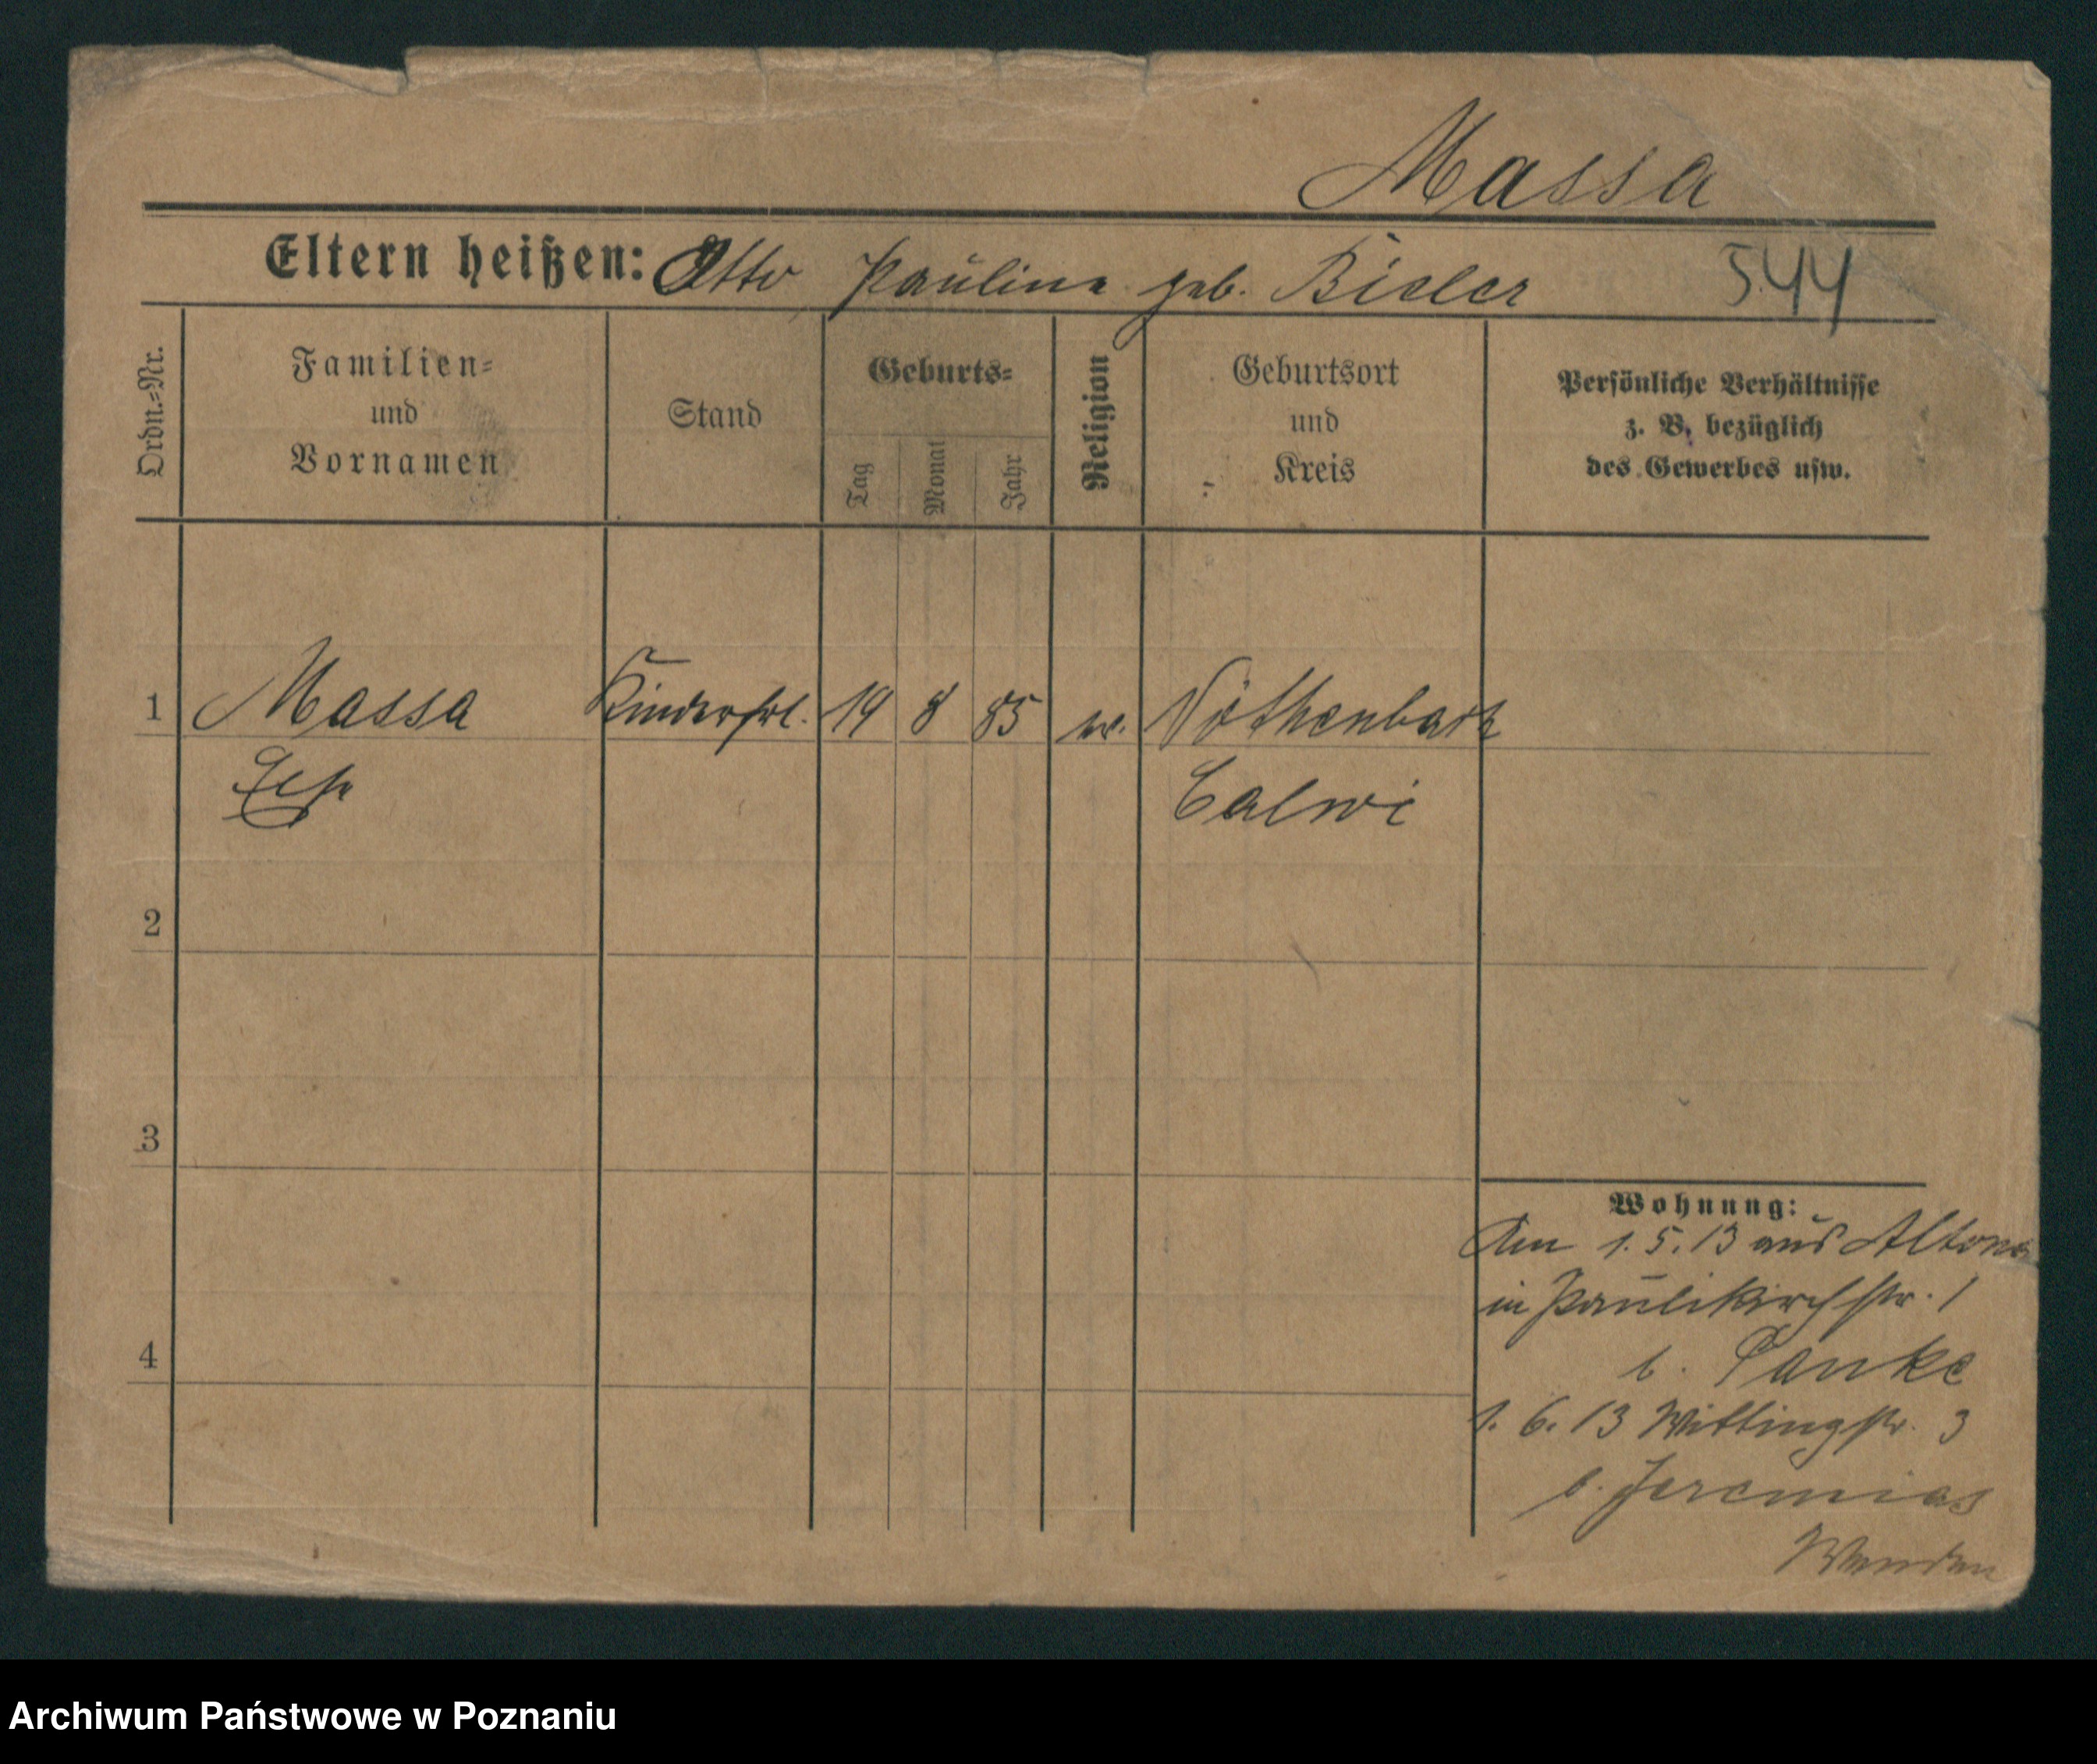 Massa
Eltern heißen: Otto Pauline geb. Bieler 544
Ordn.-Nr.
Familien-
und
Vornamen
Stand
Geburts-
Tag
Monat
Jahr
Religion
Geburtsort
und
Kreis
Persönliche Verhältnisse
z. B. bezüglich
des Gewerbes usw.
1 Massa Kinderfrl. 19 8 85 Nöthenbach
Else Calwi
2
3
4
Wohnung:
Am 1.5.13 aus Altona
in Paulikirchstr. 1
b. Panke
1. 6. 13 Wittingstr. 3
b. Jeremias
Wenden
Archiwum Państwowe w Poznaniu